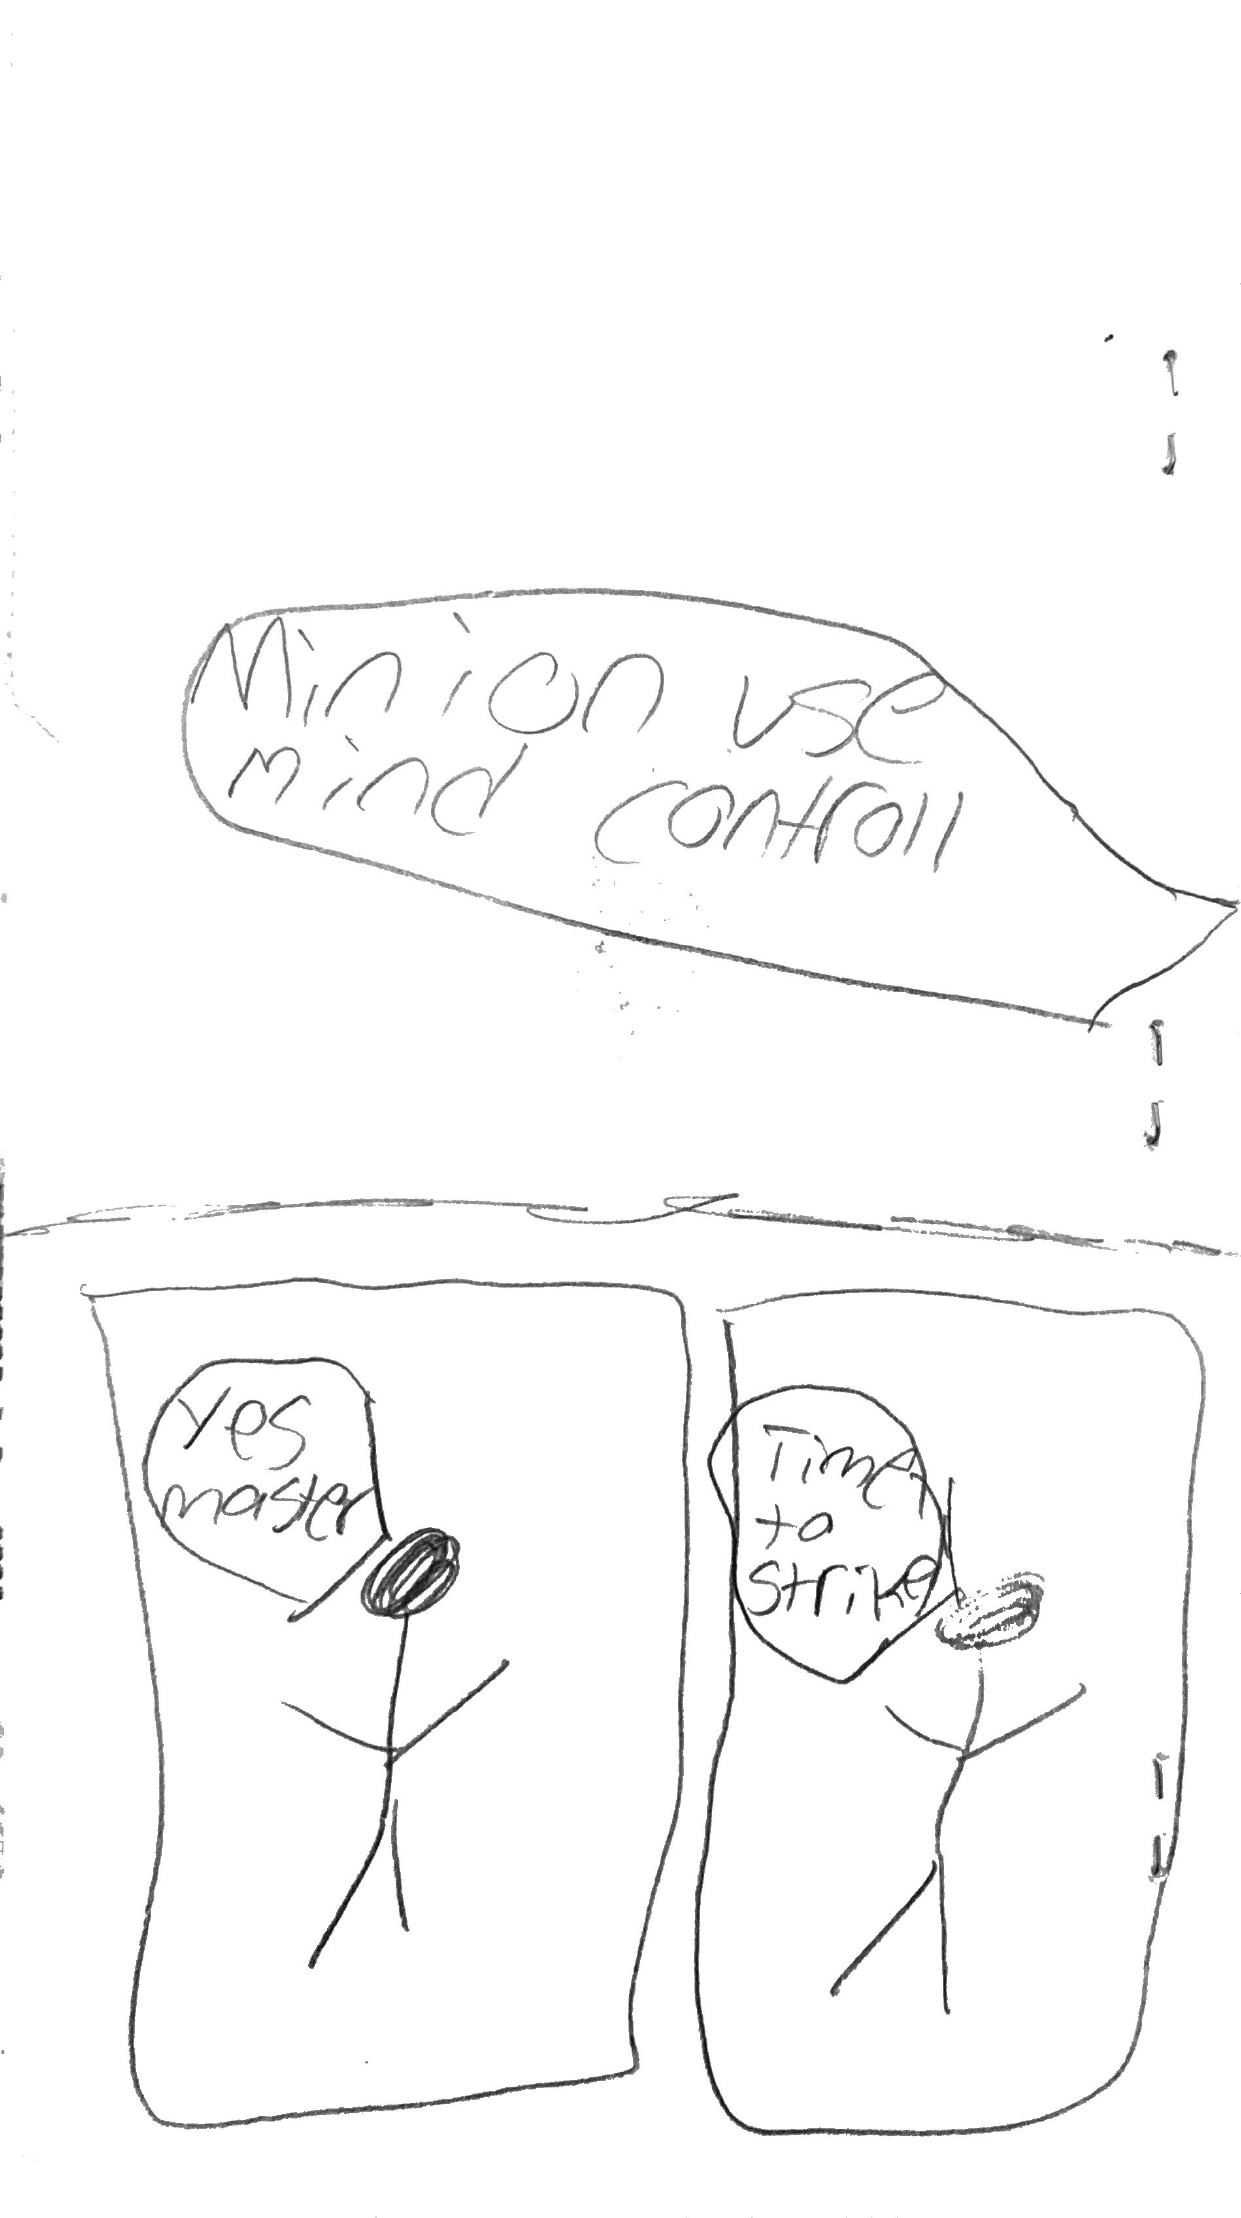 Minion use
mind controll
Yes
master
Time
to
strike